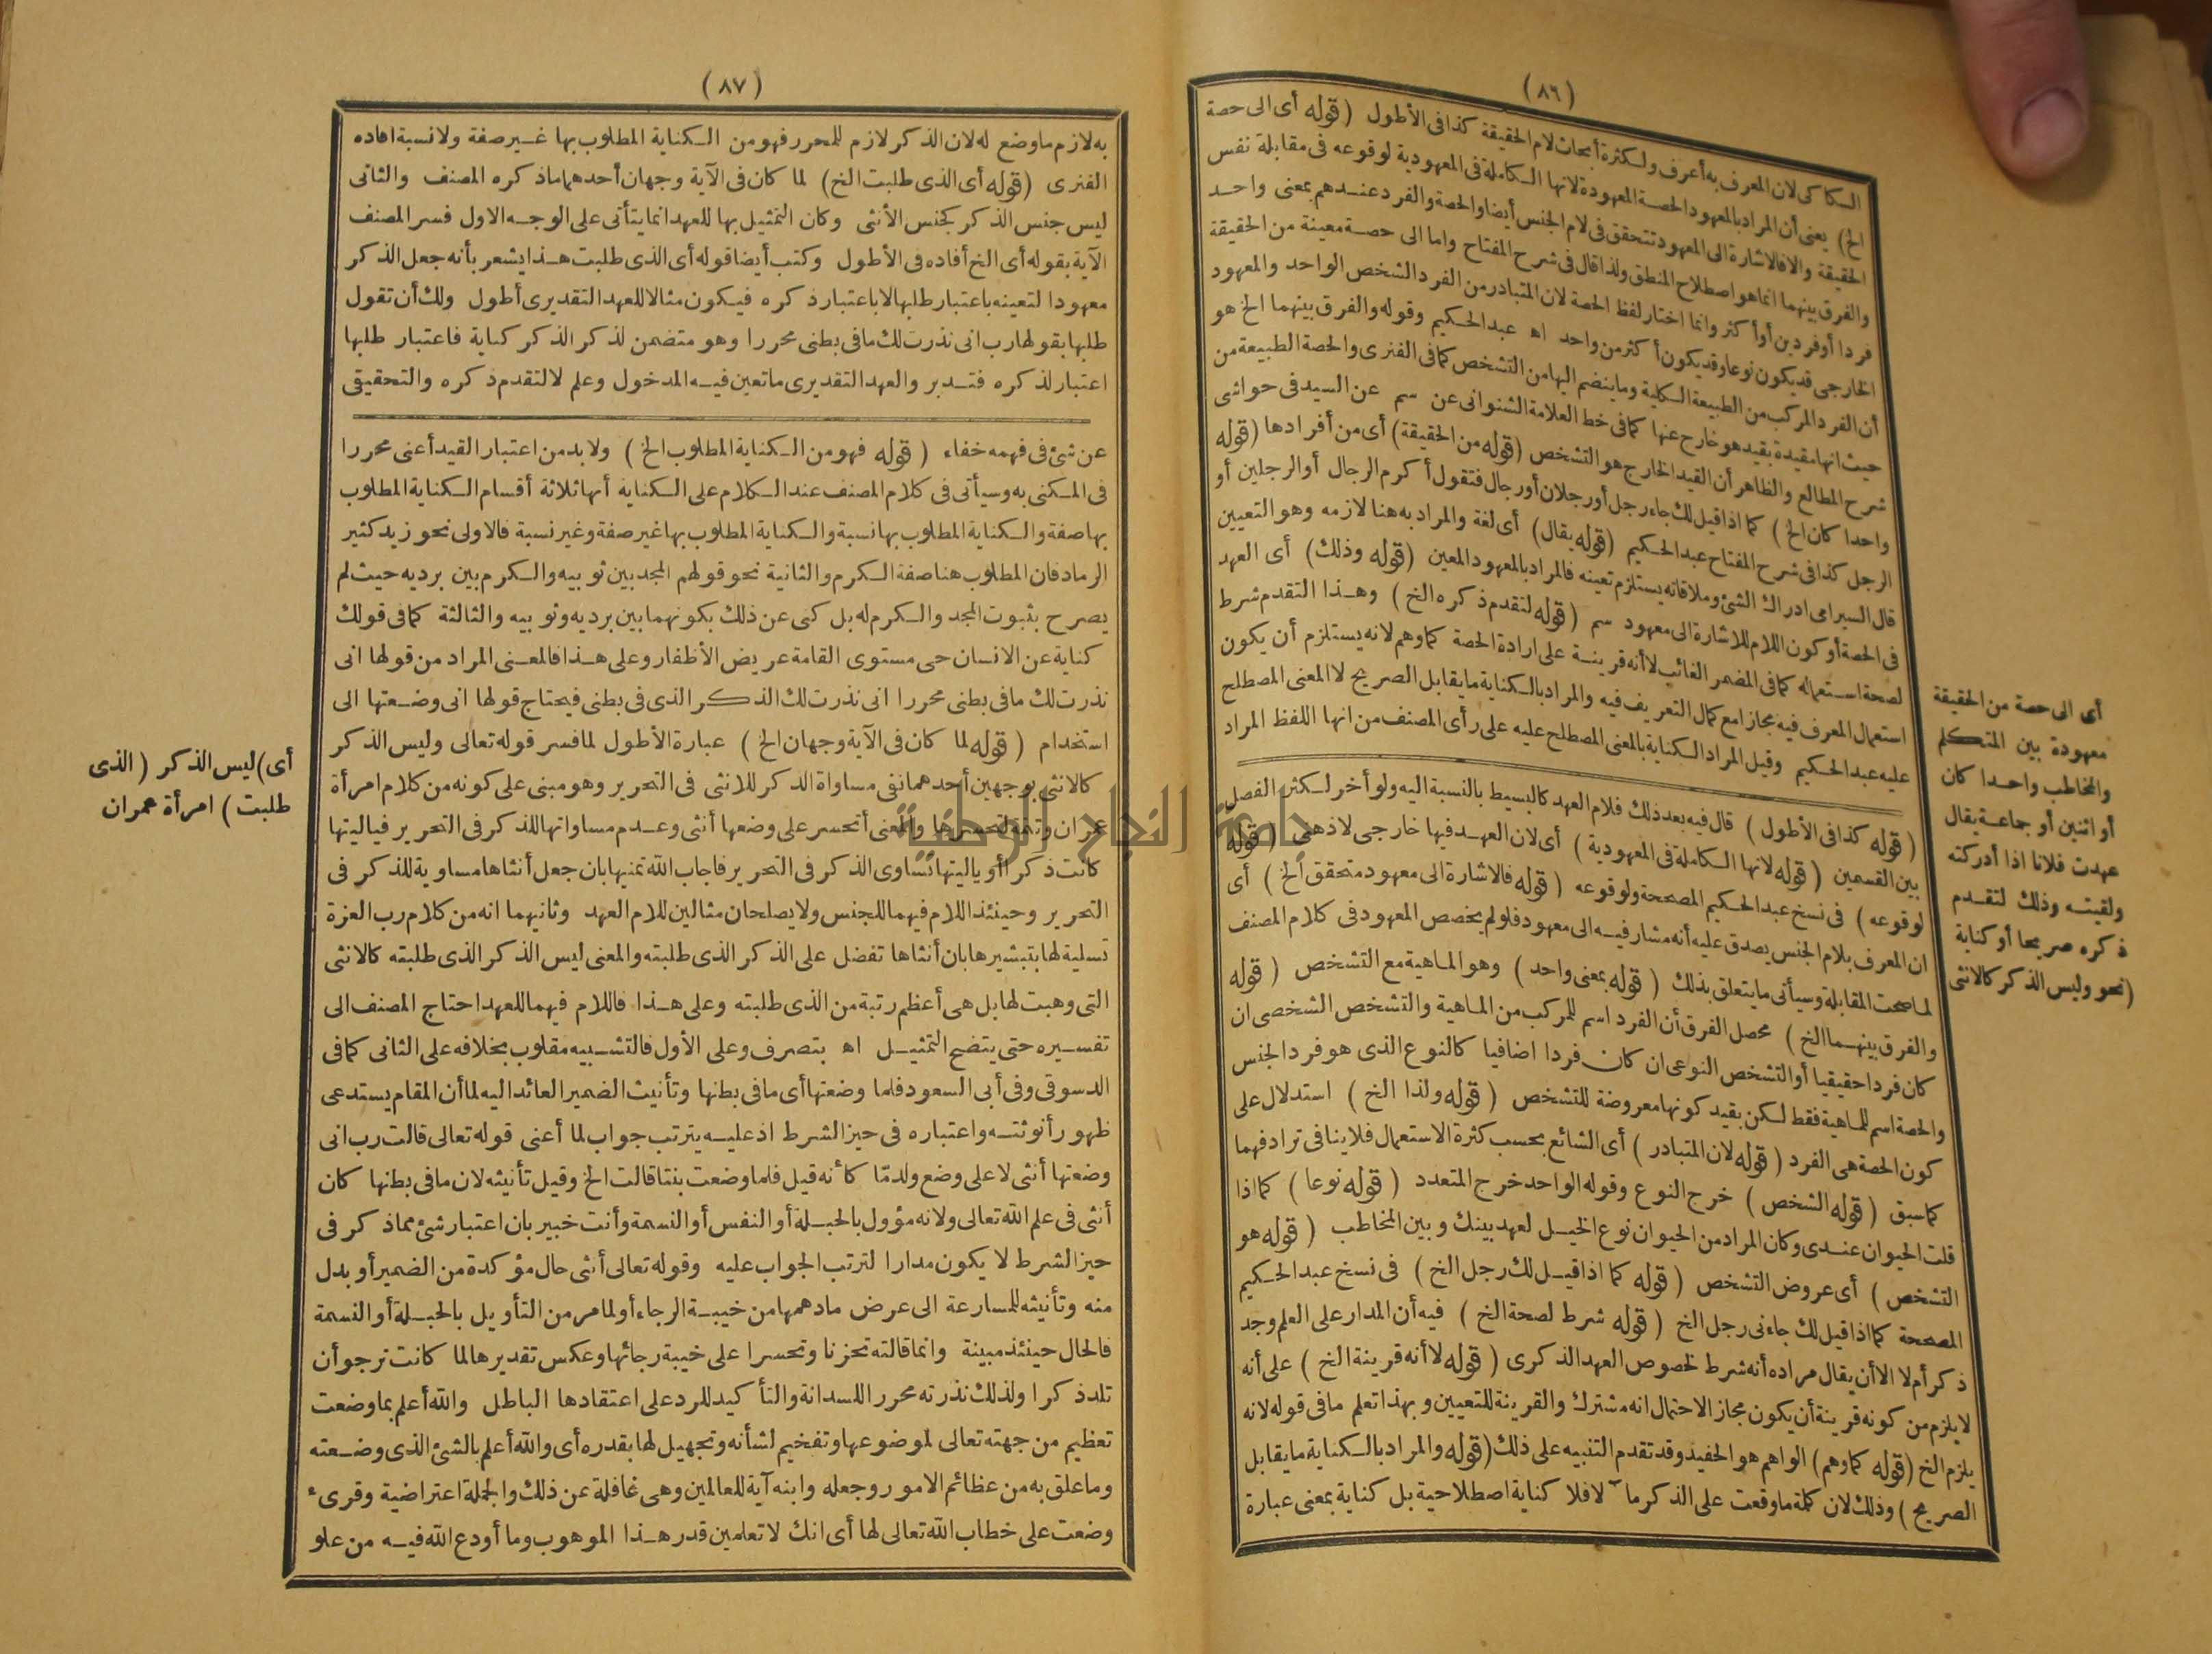 (٨٦)
السكاكى لان المعرف به أعرف ولكثرة أبحاث لام الحقيقة كذا فى الأطول (قوله أى الى حصة
الخ) يعنى أن المراد بالمعهود الحصة المعهودة لانها الكاملة فى المعهودية لوقوعه فى مقابلة نفس
الحقيقة والا فالاشارة الى المعهود تتحقق فى لام الجنس أيضا والحصة والفرد عندهم بمعنى واحد
والفرق بينهما انما هو اصطلاح المنطق ولذا قال فى شرح المفتاح واما الى حصة معينة من الحقيقة
فردا أو فردين أو أكثر وانما اختار لفظ الحصة لان المتبادر من الفرد الشخص الواحد والمعهود
الخارجى قد يكون نوعا وقد يكون أكثر من واحد اه عبد الحكيم وقوله والفرق بينهما الخ هو
أن الفرد المركب من الطبيعة الكلية وما ينضم اليها من التشخص كما فى الفنرى والحصة الطبيعة من
حيث انها مقيدة بقيد هو خارج عنها كما فى خط العلامة الشنوانى عن سم عن السيد فى حواشى
شرح المطالع والظاهر أن القيد الخارج هو التشخص (قوله من الحقيقة) أى من أفرادها (قوله
واحدا كان الخ) كما اذا قيل لك جاء رجل أو رجلان أو رجال فتقول أكرم الرجال أو الرجلين أو
الرجل كذا فى شرح المفتاح عبد الحكيم (قوله يقال) أى لغة والمراد به هنا لازمه وهو التعيين
قال السيرامى ادراك الشئ وملاقاته يستلزم تعينه فالمراد بالمعهود المعين (قوله وذلك) أى العهد
فى الحصة أو كون اللام للاشارة الى معهود سم (قوله لتقدم ذكره الخ) وهذا التقدم شرط
لصحة استعماله كما فى المضمر الغائب لا أنه قرينة على ارادة الحصة كما وهم لانه يستلزم أن يكون
استعمال المعرف فيه مجازا مع كمال التعريف فيه والمراد بالكناية ما يقابل الصريح لا المعنى المصطلح
عليه عبد الحكيم وقيل المراد الكناية بالمعنى المصطلح عليه على رأى المصنف من انها اللفظ المراد
أى الى حصة من الحقيقة
معهودة بين المتكلم
والمخاطب واحدا كان
أو اثنين أو جماعة يقال
عهدت فلانا اذا أدركته
ولقيته وذلك لتقدم
ذكره صريحا أو كناية
(نحو وليس الذكر كالانثى
(قوله كذا فى الأطول) قال فيه بعد ذلك فلام العهد كالبسيط بالنسبة اليه ولو أخر لكثر الفصل
بين القسمين (قوله لانها الكاملة فى المعهودية) أى لان العهد فيها خارجى لا ذهنى (قوله
لوقوعه) فى نسخ عبد الحكيم المصححة ولوقوعه (قوله فالاشارة الى معهود متحقق الخ) أى
ان المعرف بلام الجنس يصدق عليه أنه مشار فيه الى معهود فلو لم يخصص المعهود فى كلام المصنف
لما صحت المقابلة وسيأتى ما يتعلق بذلك (قوله بمعنى واحد) وهو الماهية مع التشخص (قوله
والفرق بينهما الخ) محصل الفرق أن الفرد اسم للمركب من الماهية والتشخص الشخصى ان
كان فردا حقيقيا أو التشخص النوعى ان كان فردا اضافيا كالنوع الذى هو فرد الجنس
والحصة اسم للماهية فقط لكن بقيد كونها معروضة للتشخص (قوله ولذا الخ) استدلال على
كون الحصة هى الفرد (قوله لان المتبادر) أى الشائع بحسب كثرة الاستعمال فلا ينافى ترادفهما
كما سبق (قوله الشخص) خرج النوع وقوله الواحد خرج المتعدد (قوله نوعا) كما اذا
قلت الحيوان عندى وكان المراد من الحيوان نوع الخيل لعهد بينك وبين المخاطب (قوله هو
التشخص) أى عروض التشخص (قوله كما اذا قيل لك رجل الخ) فى نسخ عبد الحكيم
المصححة كما اذا قيل لك جاءنى رجل الخ (قوله شرط لصحة الخ) فيه أن المدار على العلم وجد
ذكر أم لا الا أن يقال مراده أنه شرط لخصوص العهد الذكرى (قوله لا أنه قرينة الخ) على أنه
لا يلزم من كونه قرينة أن يكون مجازا لاحتمال انه مشترك والقرينة للتعيين وبهذا تعلم ما فى قوله لانه
يلزم الخ (قوله كما وهم) الواهم هو الحفيد وقد تقدم التنبيه على ذلك (قوله والمراد بالكناية ما يقابل
الصريح) وذلك لان كلمة ما وقعت على الذكر مآلا فلا كناية اصطلاحية بل كناية بمعنى عبارة
(٨٧)
به لازم ما وضع له لان الذكر لازم للمحرر فهو من الكناية المطلوب بها غير صفة ولا نسبة افاده
الفنرى (قوله أى الذى طلبت الخ) لما كان فى الآية وجهان أحدهما ما ذكره المصنف والثانى
ليس جنس الذكر كجنس الأنثى وكان التمثيل بها للعهد انما يتأتى على الوجه الاول فسر المصنف
الآية بقوله أى الخ أفاده فى الأطول وكتب أيضا قوله أى الذى طلبت هذا يشعر بأنه جعل الذكر
معهودا لتعينه باعتبار طلبها لا باعتبار ذكره فيكون مثالا للعهد التقديرى أطول ولك أن تقول
طلبها بقولها رب انى نذرت لك ما فى بطنى محررا وهو متضمن لذكر الذكر كناية فاعتبار طلبها
اعتبار لذكره فتدبر والعهد التقديرى ما تعين فيه المدخول وعلم لا لتقدم ذكره والتحقيقى
أى) ليس الذكر (الذى
طلبت) امرأة عمران
عن شئ فى فهمه خفاء (قوله فهو من الكناية المطلوب الخ) ولا بد من اعتبار القيد أعنى محررا
فى المكنى به وسيأتى فى كلام المصنف عند الكلام على الكناية أنها ثلاثة أقسام الكناية المطلوب
بها صفة والكناية المطلوب بها نسبة والكناية المطلوب بها غير صفة وغير نسبة فالاولى نحو زيد كثير
الرماد فان المطلوب هنا صفة الكرم والثانية نحو قولهم المجد بين ثوبيه والكرم بين برديه حيث لم
يصرح بثبوت المجد والكرم له بل كنى عن ذلك بكونهما بين برديه وثوبيه والثالثة كما فى قولك
كناية عن الانسان حى مستوى القامة عريض الأظفار وعلى هذا فالمعنى المراد من قولها انى
نذرت لك ما فى بطنى محررا انى نذرت لك الذكر الذى فى بطنى فيحتاج قولها انى وضعتها الى
استخدام (قوله لما كان فى الآية وجهان الخ) عبارة الأطول لما فسر قوله تعالى وليس الذكر
كالانثى بوجهين أحدهما نفى مساواة الذكر للانثى فى التحرير وهو مبنى على كونه من كلام امرأة
عمران وتتمة لتحسرها والمعنى أتحسر على وضعها أنثى وعدم مساواتها للذكر فى التحرير فياليتها
كانت ذكرا أو ياليتها تساوى الذكر فى التحرير فاجاب الله تمنيها بان جعل أنثاها مساوية للذكر فى
التحرير وحينئذ اللام فيهما للجنس ولا يصلحان مثالين للام العهد وثانيهما انه من كلام رب العزة
تسلية لها بتبشيرها بان أنثاها تفضل على الذكر الذى طلبته والمعنى ليس الذكر الذى طلبته كالانثى
التى وهبت لها بل هى أعظم رتبة من الذى طلبته وعلى هذا فاللام فيهما للعهد احتاج المصنف الى
تفسيره حتى يتضح التمثيل اه بتصرف وعلى الأول فالتشبيه مقلوب بخلافه على الثانى كما فى
الدسوقى وفى أبى السعود فلما وضعتها أى ما فى بطنها وتأنيث الضمير العائد اليه لما أن المقام يستدعى
ظهور أنوثته واعتباره فى حيز الشرط اذ عليه يترتب جواب لما أعنى قوله تعالى قالت رب انى
وضعتها أنثى لا على وضع ولد ما كأنه قيل فلما وضعت بنتا قالت الخ وقيل تأنيثه لان ما فى بطنها كان
أنثى فى علم الله تعالى ولانه مؤول بالحبلة أو النفس أو النسمة وأنت خبير بان اعتبار شئ مما ذكر فى
حيز الشرط لا يكون مدارا لترتب الجواب عليه وقوله تعالى أنثى حال مؤكدة من الضمير أو بدل
منه وتأنيثه للمسارعة الى عرض ما دهمها من خيبة الرجاء أو لما مر من التأويل بالحبلة أو النسمة
فالحال حينئذ مبينة وانما قالته تحزنا وتحسرا على خيبة رجائها وعكس تقديرها لما كانت ترجو أن
تلد ذكرا ولذلك نذرته محررا للسدانة والتأكيد للرد على اعتقادها الباطل والله أعلم بما وضعت
تعظيم من جهته تعالى لموضوعها وتفخيم لشأنه وتجهيل لها بقدره أى والله أعلم بالشئ الذى وضعته
وما علق به من عظائم الامور وجعله وابنه آية للعالمين وهى غافلة عن ذلك والجملة اعتراضية وقرىء
وضعت على خطاب الله تعالى لها أى انك لا تعلمين قدر هذا الموهوب وما أودع الله فيه من علو
جامعة النجاح الوطنية